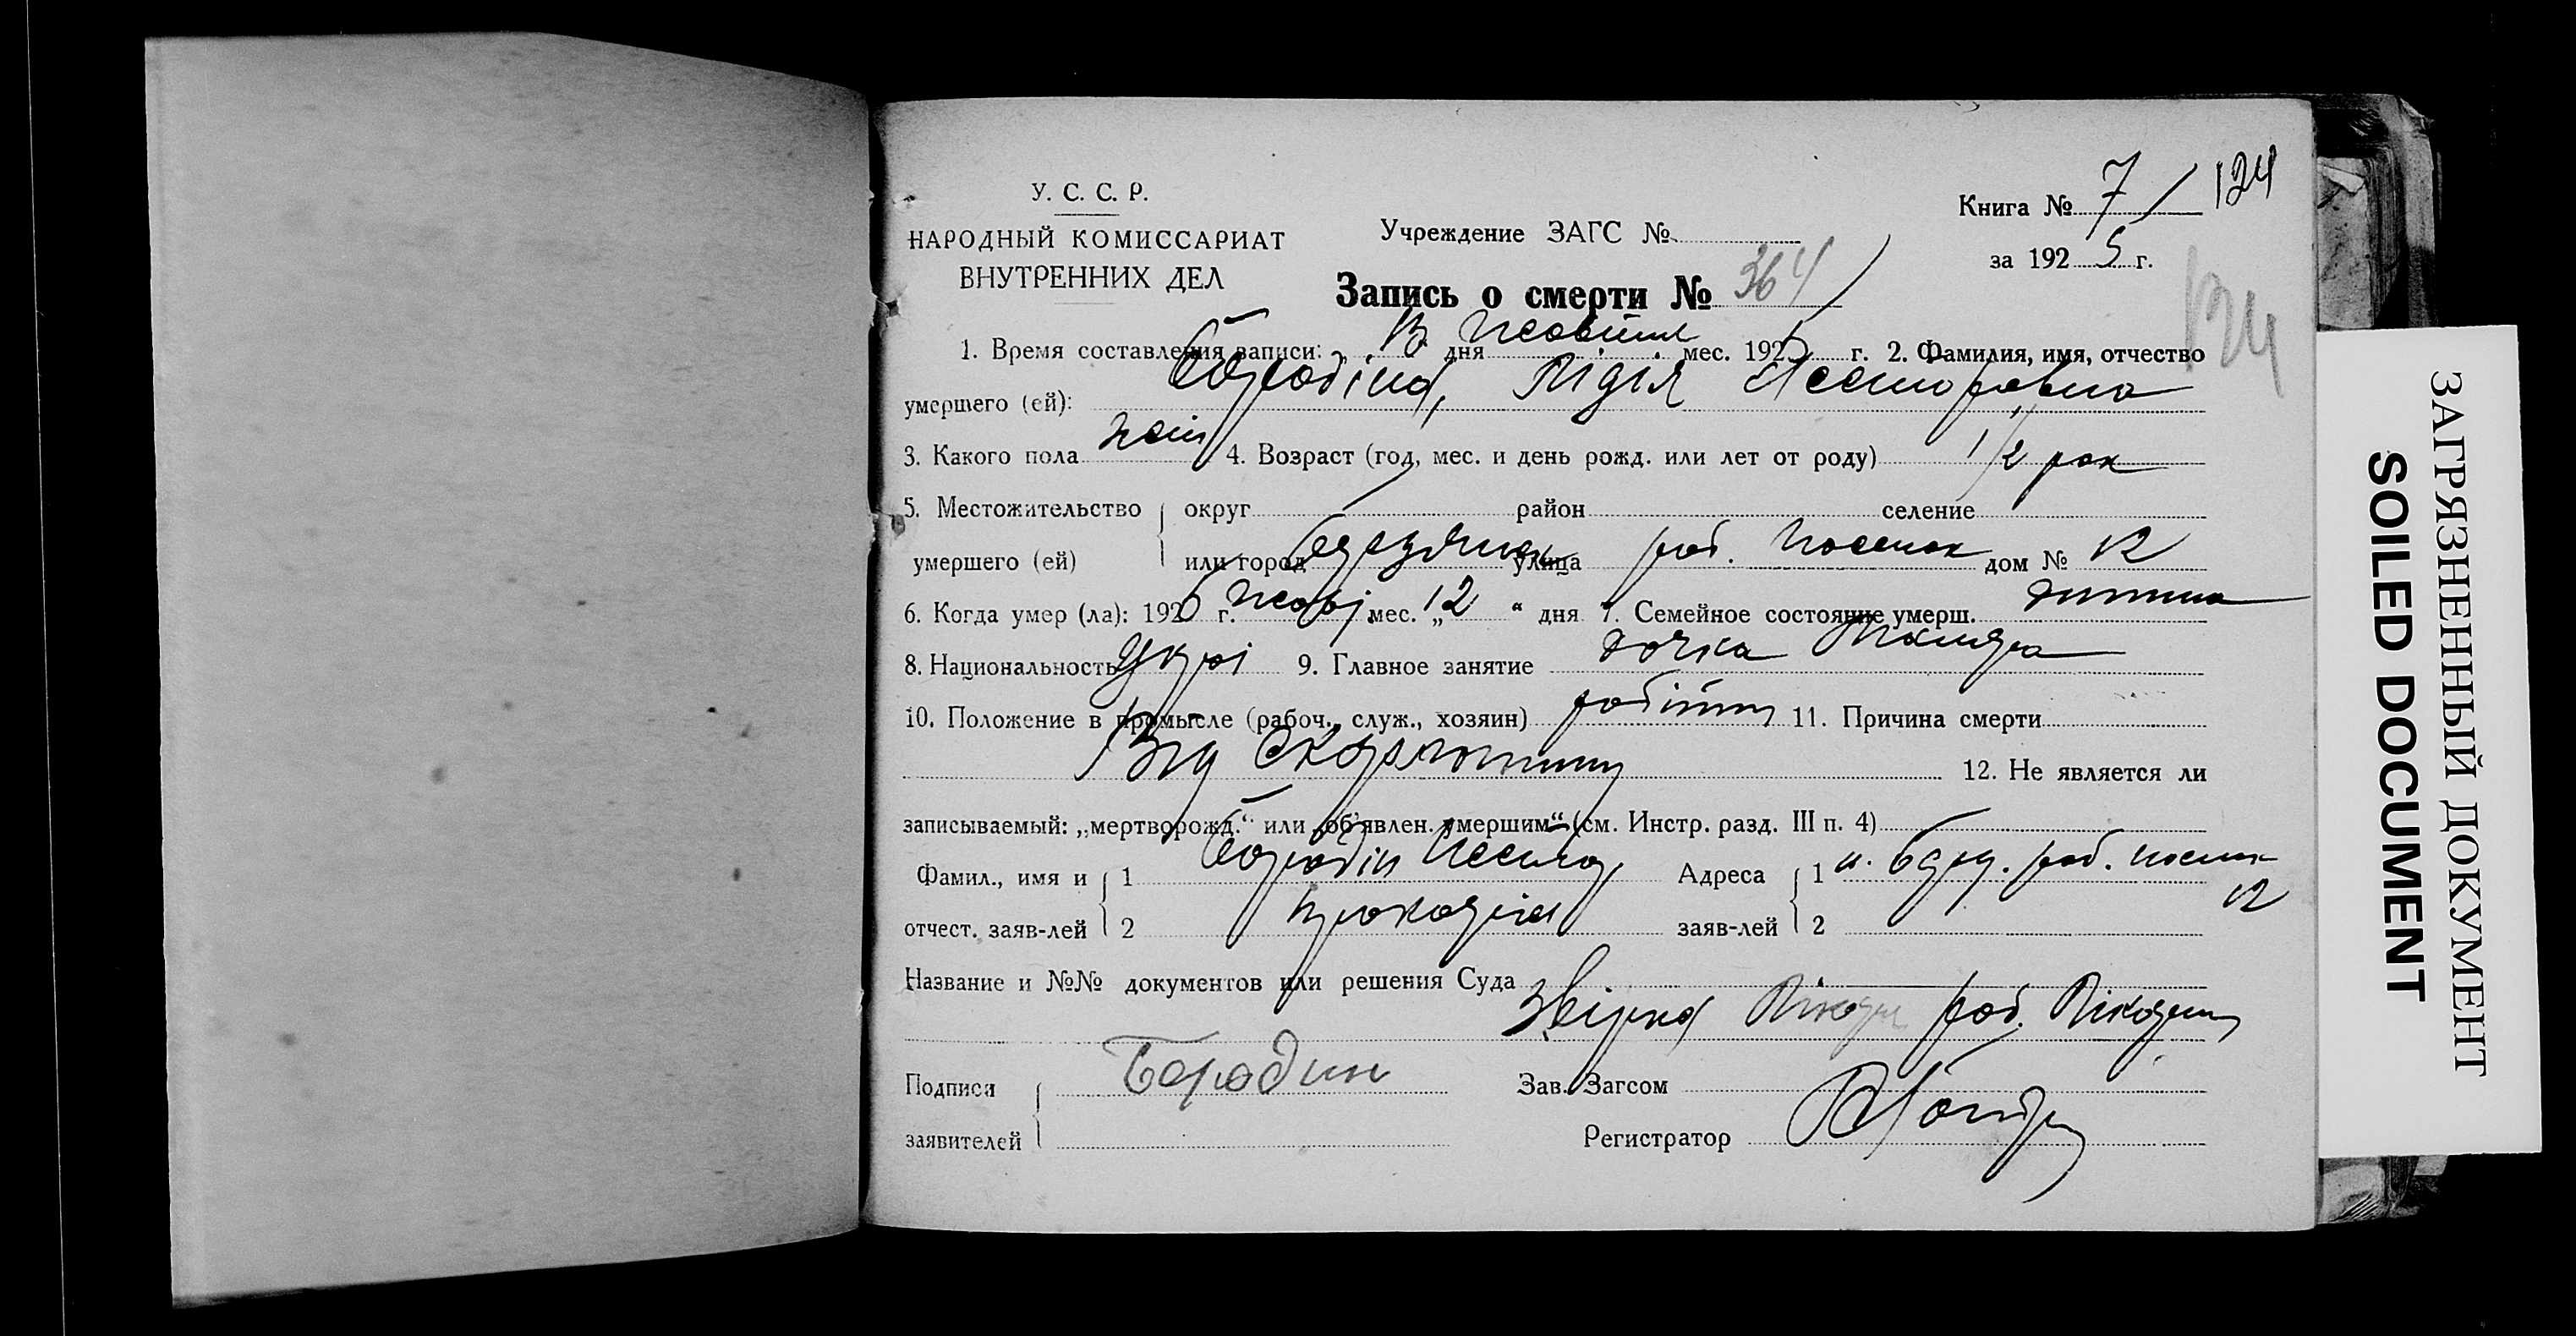 У. С. С. Р.
НАРОДНЫЙ КОМИССАРИАТ
ВНУТРЕННИХ ДЕЛ
Учреждение ЗАГС №
Запись о смерти № 364
Книга № 7 / 124
за 1925 г.
124
1. Время составления записи: 13 дня Жовтня мес. 1925 г. 2. Фамилия, имя, отчество
умершего (ей): Бородіна, Лідія Несторовна
3. Какого пола жін 4. Возраст (год, мес. и день рожд. или лет от роду) 1/2 рок
5. Местожительство округ район селение
умершего (ей) или город улица роб. дом № 12
6. Когда умер (ла): 192 г. Жовт. мес. „12“ дня 7. Семейное состояние умерш. дитина
8. Национальность Укр 9. Главное занятие дочка
10. Положение в промысле (рабоч., служ., хозяин) 11. Причина смерти
Від Скарлатини 12. Не является ли
записываемый: „мертворожд.“ или „об'явлен. умершим“ (см. Инстр. разд. III п. 4)
Фамил., имя и 1 Бородін Нестор Адреса 1 роб. 12
отчест. заяв-лей 2 заяв-лей 2
Название и №№ документов или решения Суда
роб.
Подписи Бородин Зав. Загсом
заявителей Регистратор
ЗАГРЯЗНЕННЫЙ ДОКУМЕНТ
SOILED DOCUMENT